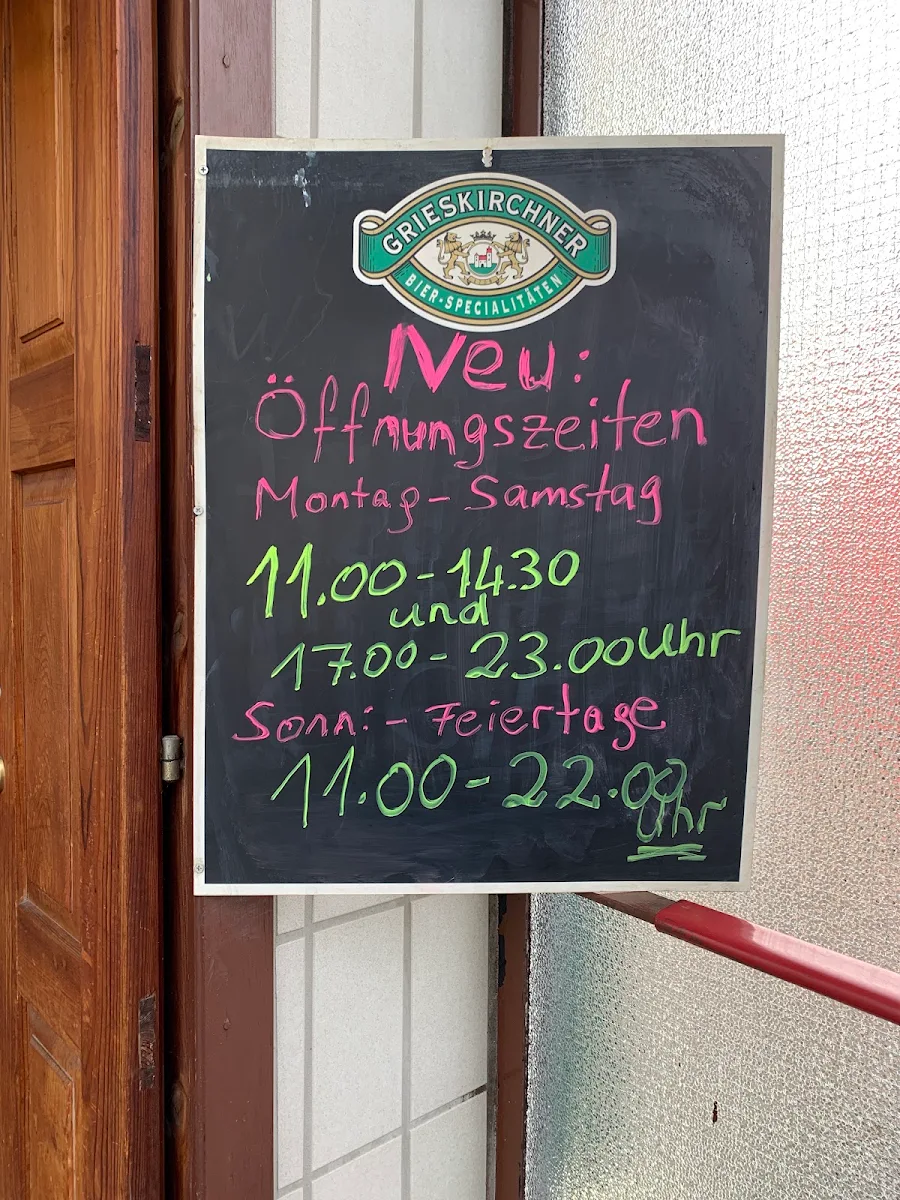 GRIESKIRCHNER
BIER-SPECIALITÄTEN
Neu:
Öffnungszeiten
Montag - Samstag
11.00 - 14.30
und
17.00 - 23.00 Uhr
Sonn: - Feiertage
11.00 - 22.00
Uhr